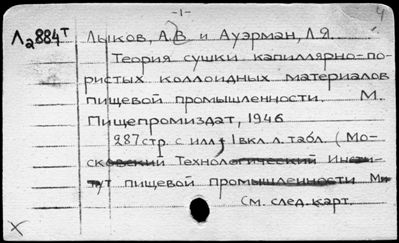 -1-
4
Л2884т Лыков, А.В и Ауэрман, Л.Я.
Теория сушки капиллярно-по-
ристых коллоидных материалов
пищевой промышленности. М.
Пищепромиздат, 1946
287стр. с илл, 1вкл. л. табл. (Мо-
сковский Технологический Инсти-
тут пищевой промышленности М
См. след. карт.
X